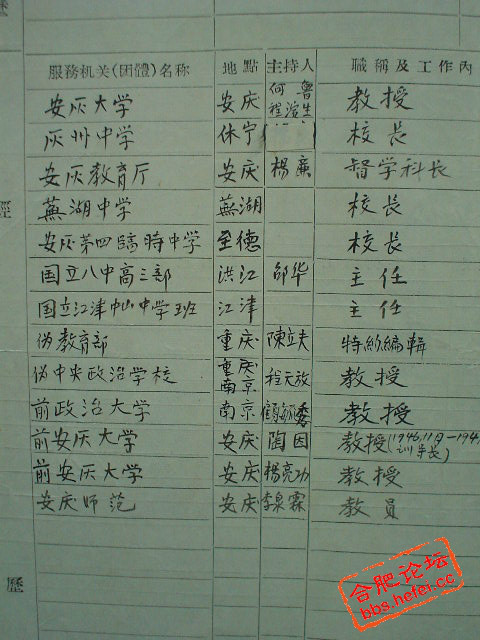 服務机关(团體)名称 地點 主持人 職稱及工作內
安灰大学 安庆 何魯 程演生 教授
灰州中学 休宁 校长
安灰教育厅 安庆 楊廉 督学科长
蕪湖中学 蕪湖 校长
安灰第四臨時中学 至德 校长
国立八中高三部 洪江 邵华 主任
国立江津中山中学班 江津 主任
伪教育部 重庆 陳立夫 特約編輯
伪中央政治学校 重庆 南京 程天放 教授
前政治大学 南京 顧毓琇 教授
前安灰大学 安庆 陶因 教授(1946,11月—194
训导长)
前安灰大学 安庆 楊亮功 教授
安庆师范 安庆 李泉霖 教員
歷
合肥论坛
bbs.hefei.cc